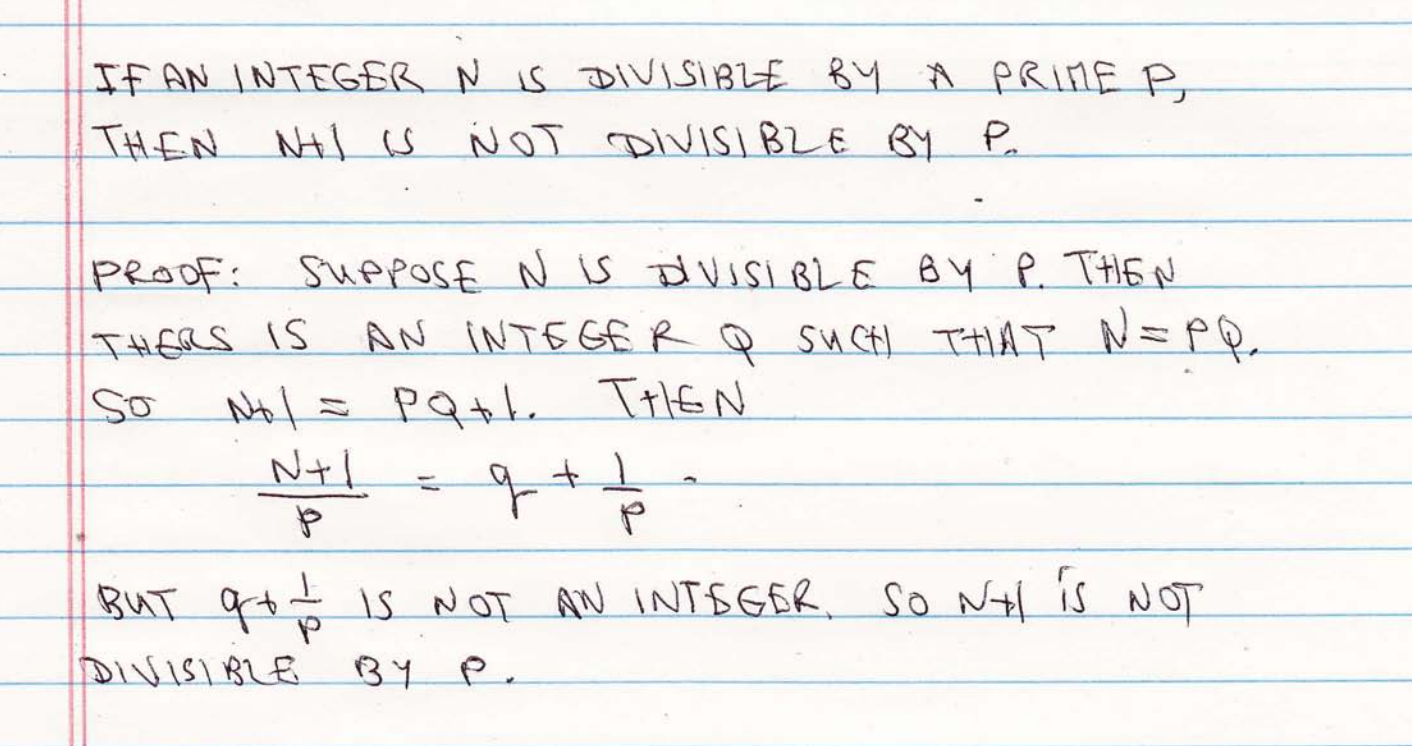 IF AN INTEGER N IS DIVISIBLE BY A PRIME P,
THEN N+1 IS NOT DIVISIBLE BY P.
PROOF: SUPPOSE N IS DIVISIBLE BY P. THEN
THERS IS AN INTEGER Q SUCH THAT N = PQ.
SO N+1 = PQ+1. THEN
(N+1)/P = q + 1/P .
BUT q + 1/P IS NOT AN INTEGER. SO N+1 IS NOT
DIVISIBLE BY P.